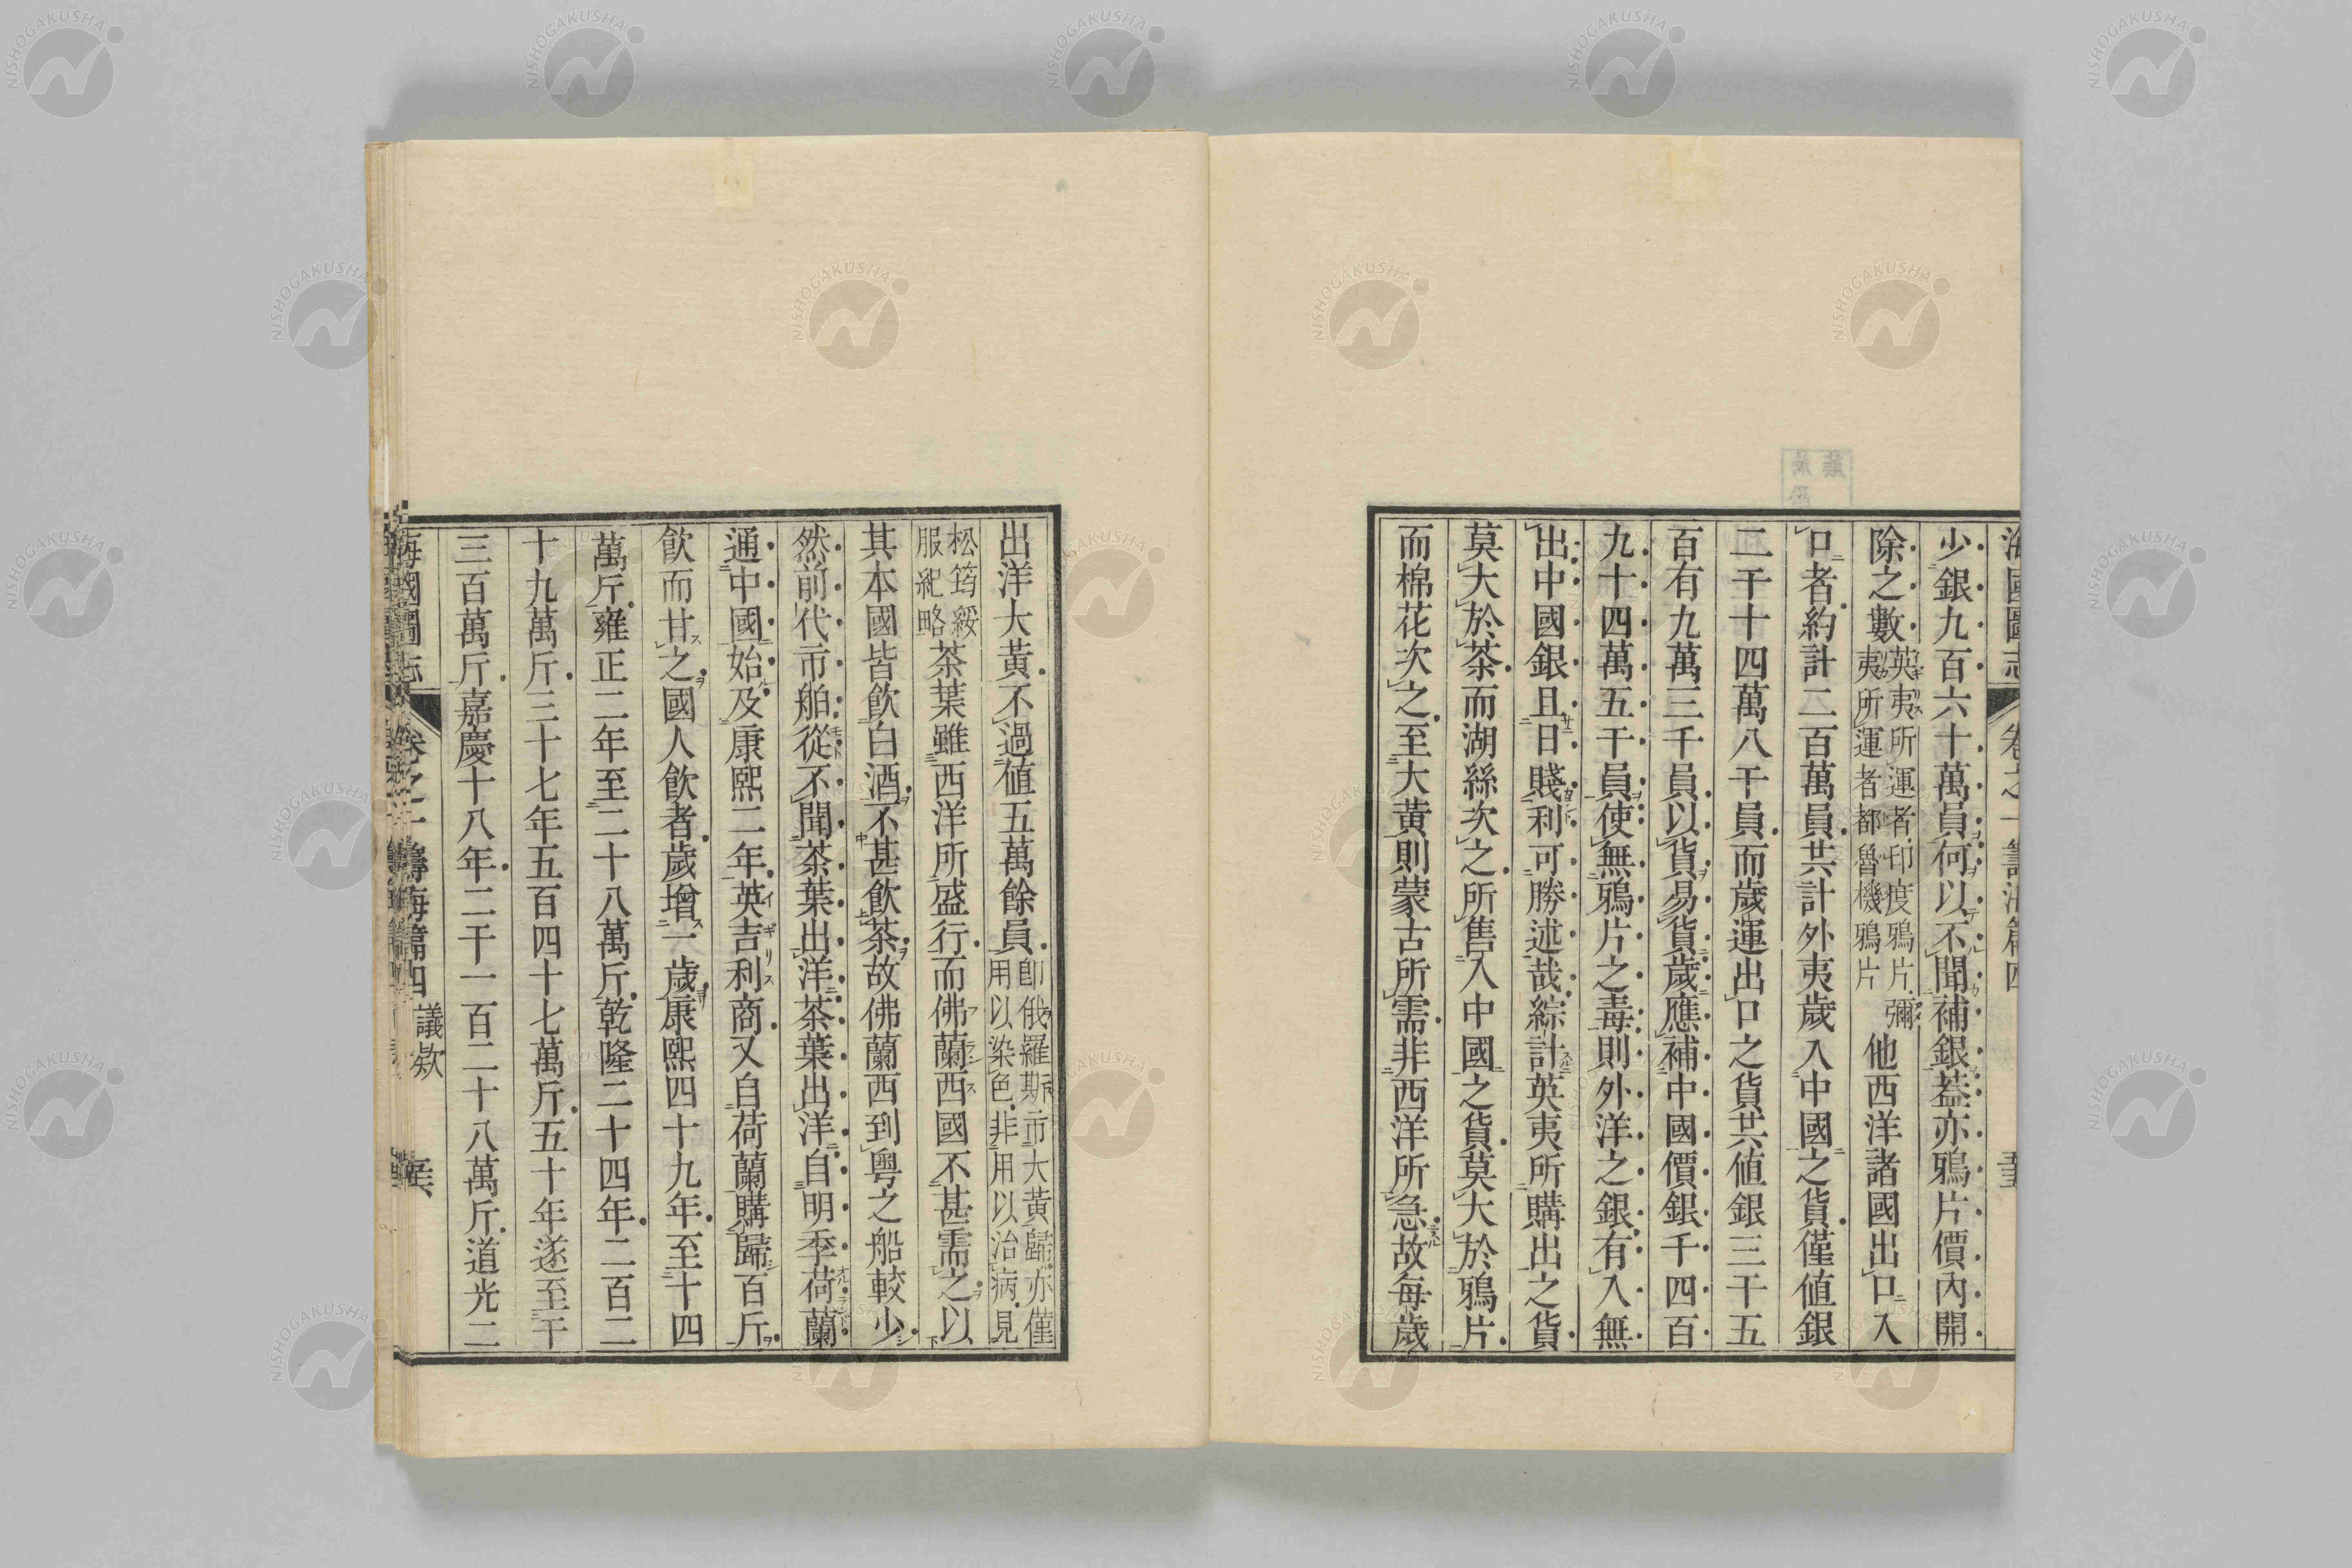 海國圖志 卷之一 籌海篇四
少銀九百六十萬員何以不聞補銀葢亦鴉片價內開
除之數英夷所運者印度鴉片彌夷所運者都魯機鴉片他西洋諸國出口入
口者約計二百萬員共計外夷歲入中國之貨僅值銀
二千十四萬八千員而歲運出口之貨共値銀三千五
百有九萬三千員以貨易貨歲應補中國價銀千四百
九十四萬五千員使無鴉片之毒則外洋之銀有入無
出中國銀且日賤利可勝述哉綜計英夷所購出之貨
莫大於茶而湖絲次之所售入中國之貨莫大於鴉片
而棉花次之至大黃則蒙古所需非西洋所急故每歲
出洋大黃不過値五萬餘員卽俄羅斯市大黃歸亦僅用以染色非用以治病見
松筠綏服紀略茶葉雖西洋所盛行而佛蘭西國不甚需之以
其本國皆飮白酒不甚飮茶故佛蘭西到粵之船較少
然前代市舶從不聞茶葉出洋茶葉出洋自明季荷蘭
通中國始及康熙二年英吉利商又自荷蘭購歸百斤
飮而甘之國人飮者歲增一歲康熙四十九年至十四
萬斤雍正二年至二十八萬斤乾隆二十四年二百二
十九萬斤三十七年五百四十七萬斤五十年遂至千
三百萬斤嘉慶十八年二千一百二十八萬斤道光二
海國圖志 籌海篇四 議欵
NISHOGAKUSHA